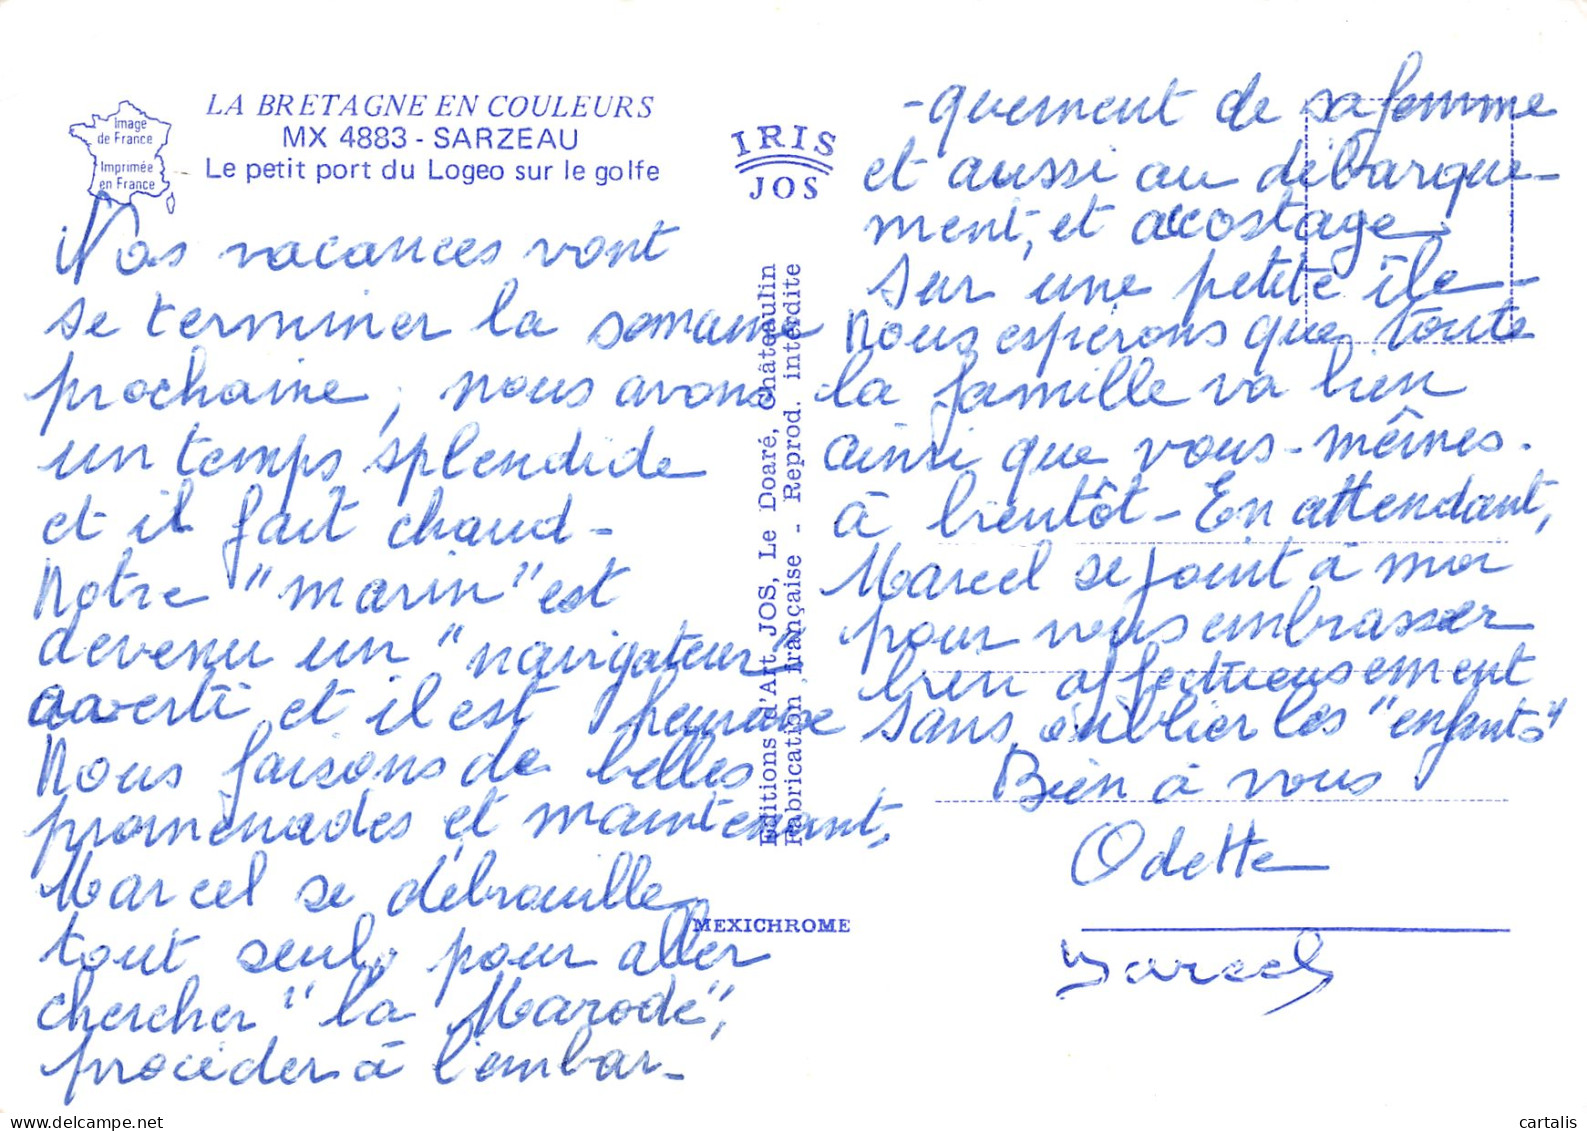 LA BRETAGNE EN COULEURS
MX 4883 - SARZEAU
Le petit port du Logeo sur le golfe
Image
de France
Imprimée
en France
IRIS
JOS
Nos vacances vont
se terminer la semaine
prochaine, nous avons
un temps splendide
et il fait chaud -
Notre "marin" est
devenu un "navigateur"
averti et il est heureux
Nous faisons de belles
promenades et maintenant,
Marcel se débrouille
tout seul, pour aller
chercher "la Marode",
procéder à l'embar-
-quement de sa femme
et aussi au débarque-
ment, et accostage
sur une petite île -
Nous espérons que toute
la famille va bien
ainsi que vous-mêmes.
à bientôt - En attendant,
Marcel se joint à moi
pour vous embrasser
bien affectueusement
sans oublier les "enfants"
Bien à vous
Odette
Marcel
Editions d'Art JOS, Le Doaré, Châteaulin
Fabrication française - Reprod. interdite
MEXICHROME
cartalis